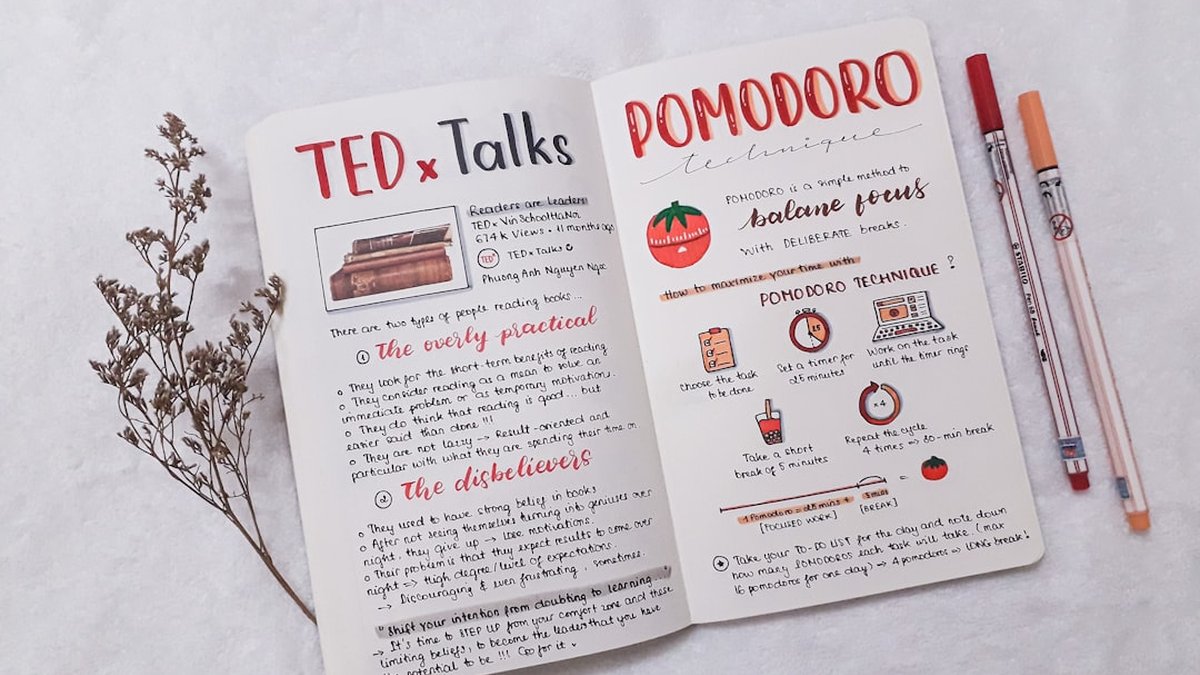 TED x Talks
Readers are Leaders
TED x VinSchoolHaNoi
674K Views • 11 months ago
TEDx
TED x Talks
Phuong Anh Nguyen Ngoc
There are two types of people reading books...
1 The overly practical
They look for the short-term benefits of reading
They consider reading as a mean to solve an
immediate problem or as temporary motivation.
They do think that reading is good... but
easier said than done !!!
They are not lazzy → Result-oriented and
particular with what they are spending their time on
2 The disbelievers
They used to have strong belief in books
After not seeing themselves turning into geniuses over
night, they give up → lose motivations.
Their problem is that they expect results to come over
night => High degree/level of expectations.
→ Discouraging & even frustrating, sometimes.
"Shift your intention from doubting to learning..."
→ It's time to STEP UP from your comfort zone and these
limiting beliefs, to become the leader that you have
the potential to be !!! Go for it
POMODORO
technique
POMODORO is a simple method to
balane focus
With DELIBERATE breaks.
How to maximize your time with
POMODORO TECHNIQUE ?
Choose the task
to be done
25
Set a timer for
25 minutes
Work on the task
until the timer rings
Take a short
break of 5 minutes
x4
Repeat the cycle
4 times => 30-min break
1 Pomodoro = 25 mins + 5 mins =
[FOCUSED WORK] [BREAK]
Take your TO-DO LIST for the day and note down
how many POMODOROS each task will take. (max
16 pomodoros for one day) => 4 pomodoros => LONG break!
STABILO
Pen 68